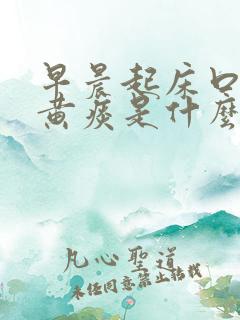 早晨起床口
黄痰是什麽
凡心聖道
未经同意禁止转载